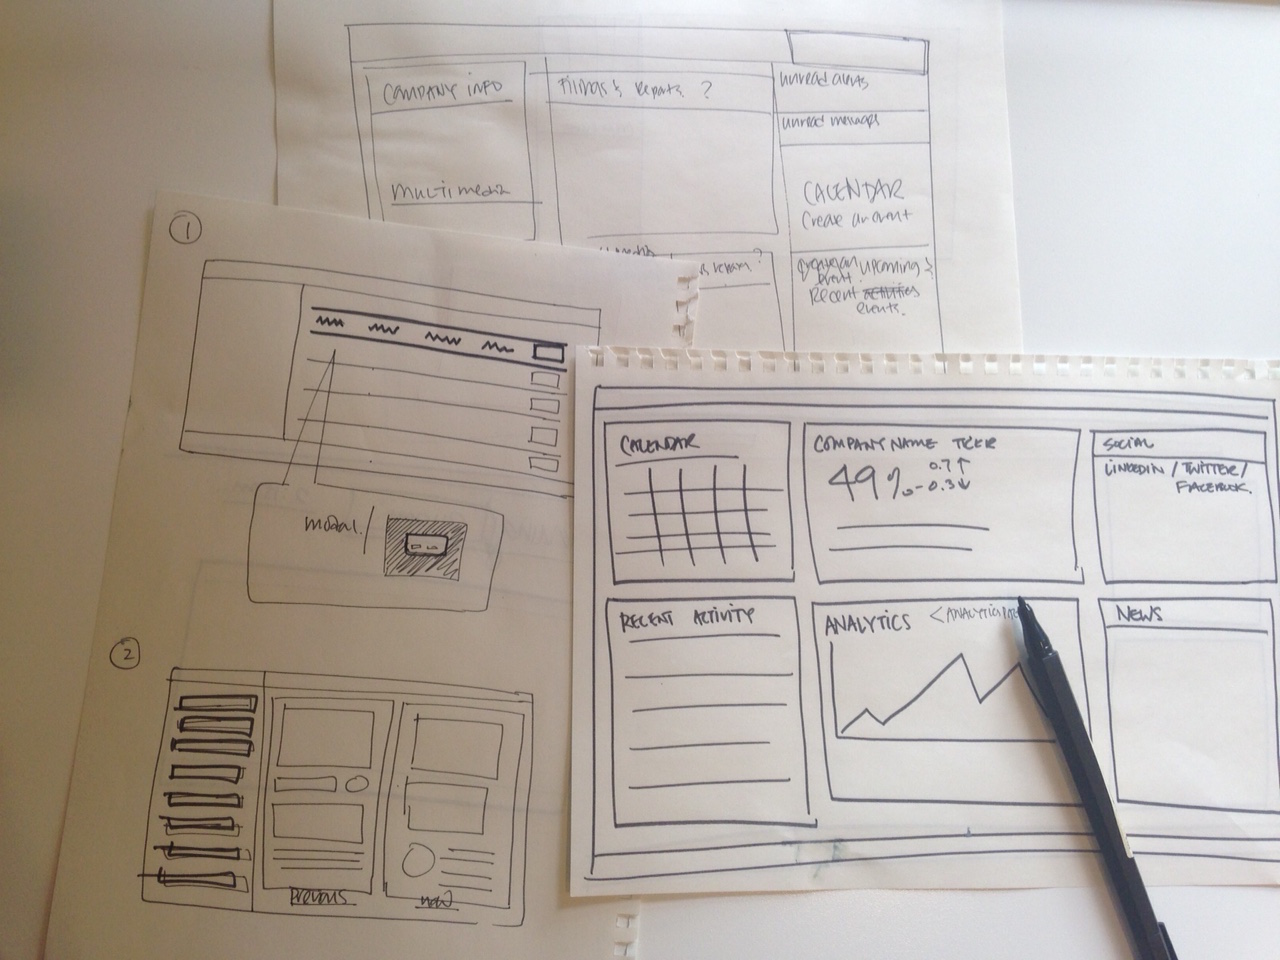 COMPANY INFO
Filings & Reports ?
unread alerts
unread messages
multimedia
CALENDAR
Create an event
event.
upcoming &
Recent activities
events.
1
modal
2
Previous
new
CALENDAR
COMPANY NAME TICKER
49%
0.7↑
-0.3↓
SOCIAL
LINKEDIN / TWITTER /
FACEBOOK
RECENT ACTIVITY
ANALYTICS
NEWS